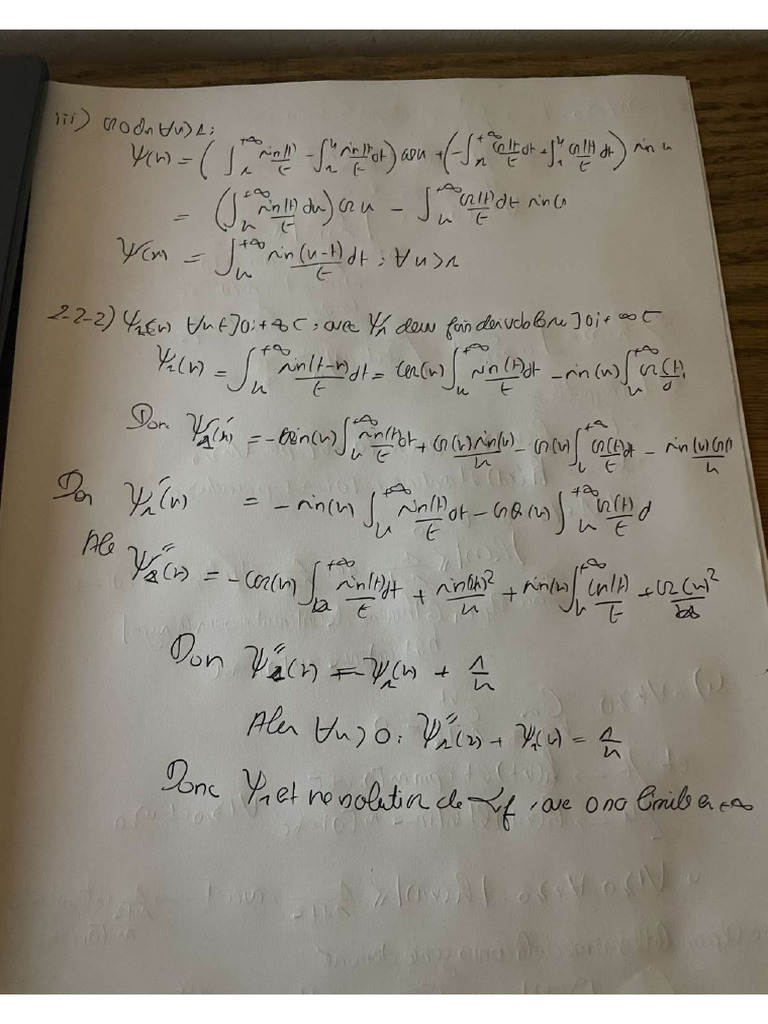 iii) on a donc ∀u>1;
Ψ(u) = (∫_1^{+∞} sin(t)/t - ∫_1^u sin(t)/t dt) cos u + (-∫_1^{+∞} cos(t)/t dt + ∫_1^u cos(t)/t dt) sin u
= (∫_u^{+∞} sin(t)/t du) cos u - ∫_u^{+∞} cos(t)/t dt sin u
Ψ(u) = ∫_u^{+∞} sin(u-t)/t dt ; ∀u>1
2-2-2) Ψ_1(u) ∀u∈]0;+∞[ ; avec Ψ_1 deux fois dérivable sur ]0;+∞[
Ψ_1(u) = ∫_u^{+∞} sin(t-u)/t dt = cos(u) ∫_u^{+∞} sin(t)/t dt - sin(u) ∫_u^{+∞} cos(t)/t
Donc Ψ_1'(u) = -sin(u) ∫_u^{+∞} sin(t)/t dt + cos(u) sin(u)/u - cos(u) ∫_u^{+∞} cos(t)/t dt - sin(u) cos()/u
Don Ψ_1'(u) = -sin(u) ∫_u^{+∞} sin(t)/t dt - cos(u) ∫_u^{+∞} cos(t)/t d
Alr Ψ_1''(u) = -cos(u) ∫_u^{+∞} sin(t)/t dt + sin(u)²/u + sin(u) ∫_u^{+∞} cos(t)/t + cos(u)²/u
Don Ψ_1''(u) = -Ψ_1(u) + 1/u
Alr ∀u>0 : Ψ_1''(u) + Ψ_1(u) = 1/u
Donc Ψ_1 et ne solution de f , ave 0 na limite a +∞